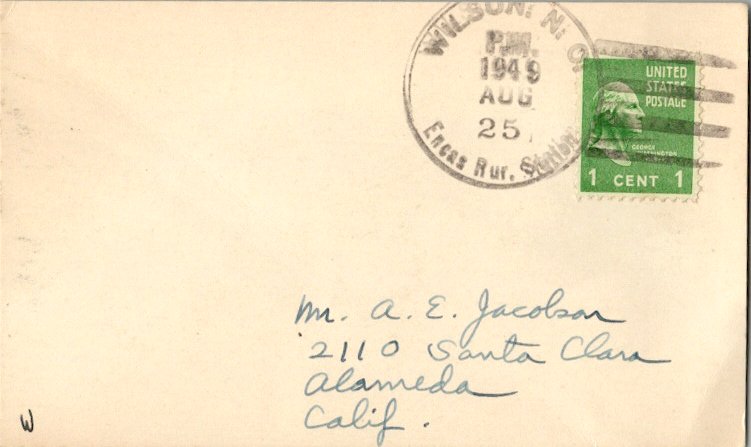 WILSON, N. C.
P.M.
1949
AUG
25
Eneas Rur. Station
UNITED
STATES
POSTAGE
GEORGE
WASHINGTON
1 CENT 1
Mr. A. E. Jacobson
2110 Santa Clara
Alameda
Calif.
W